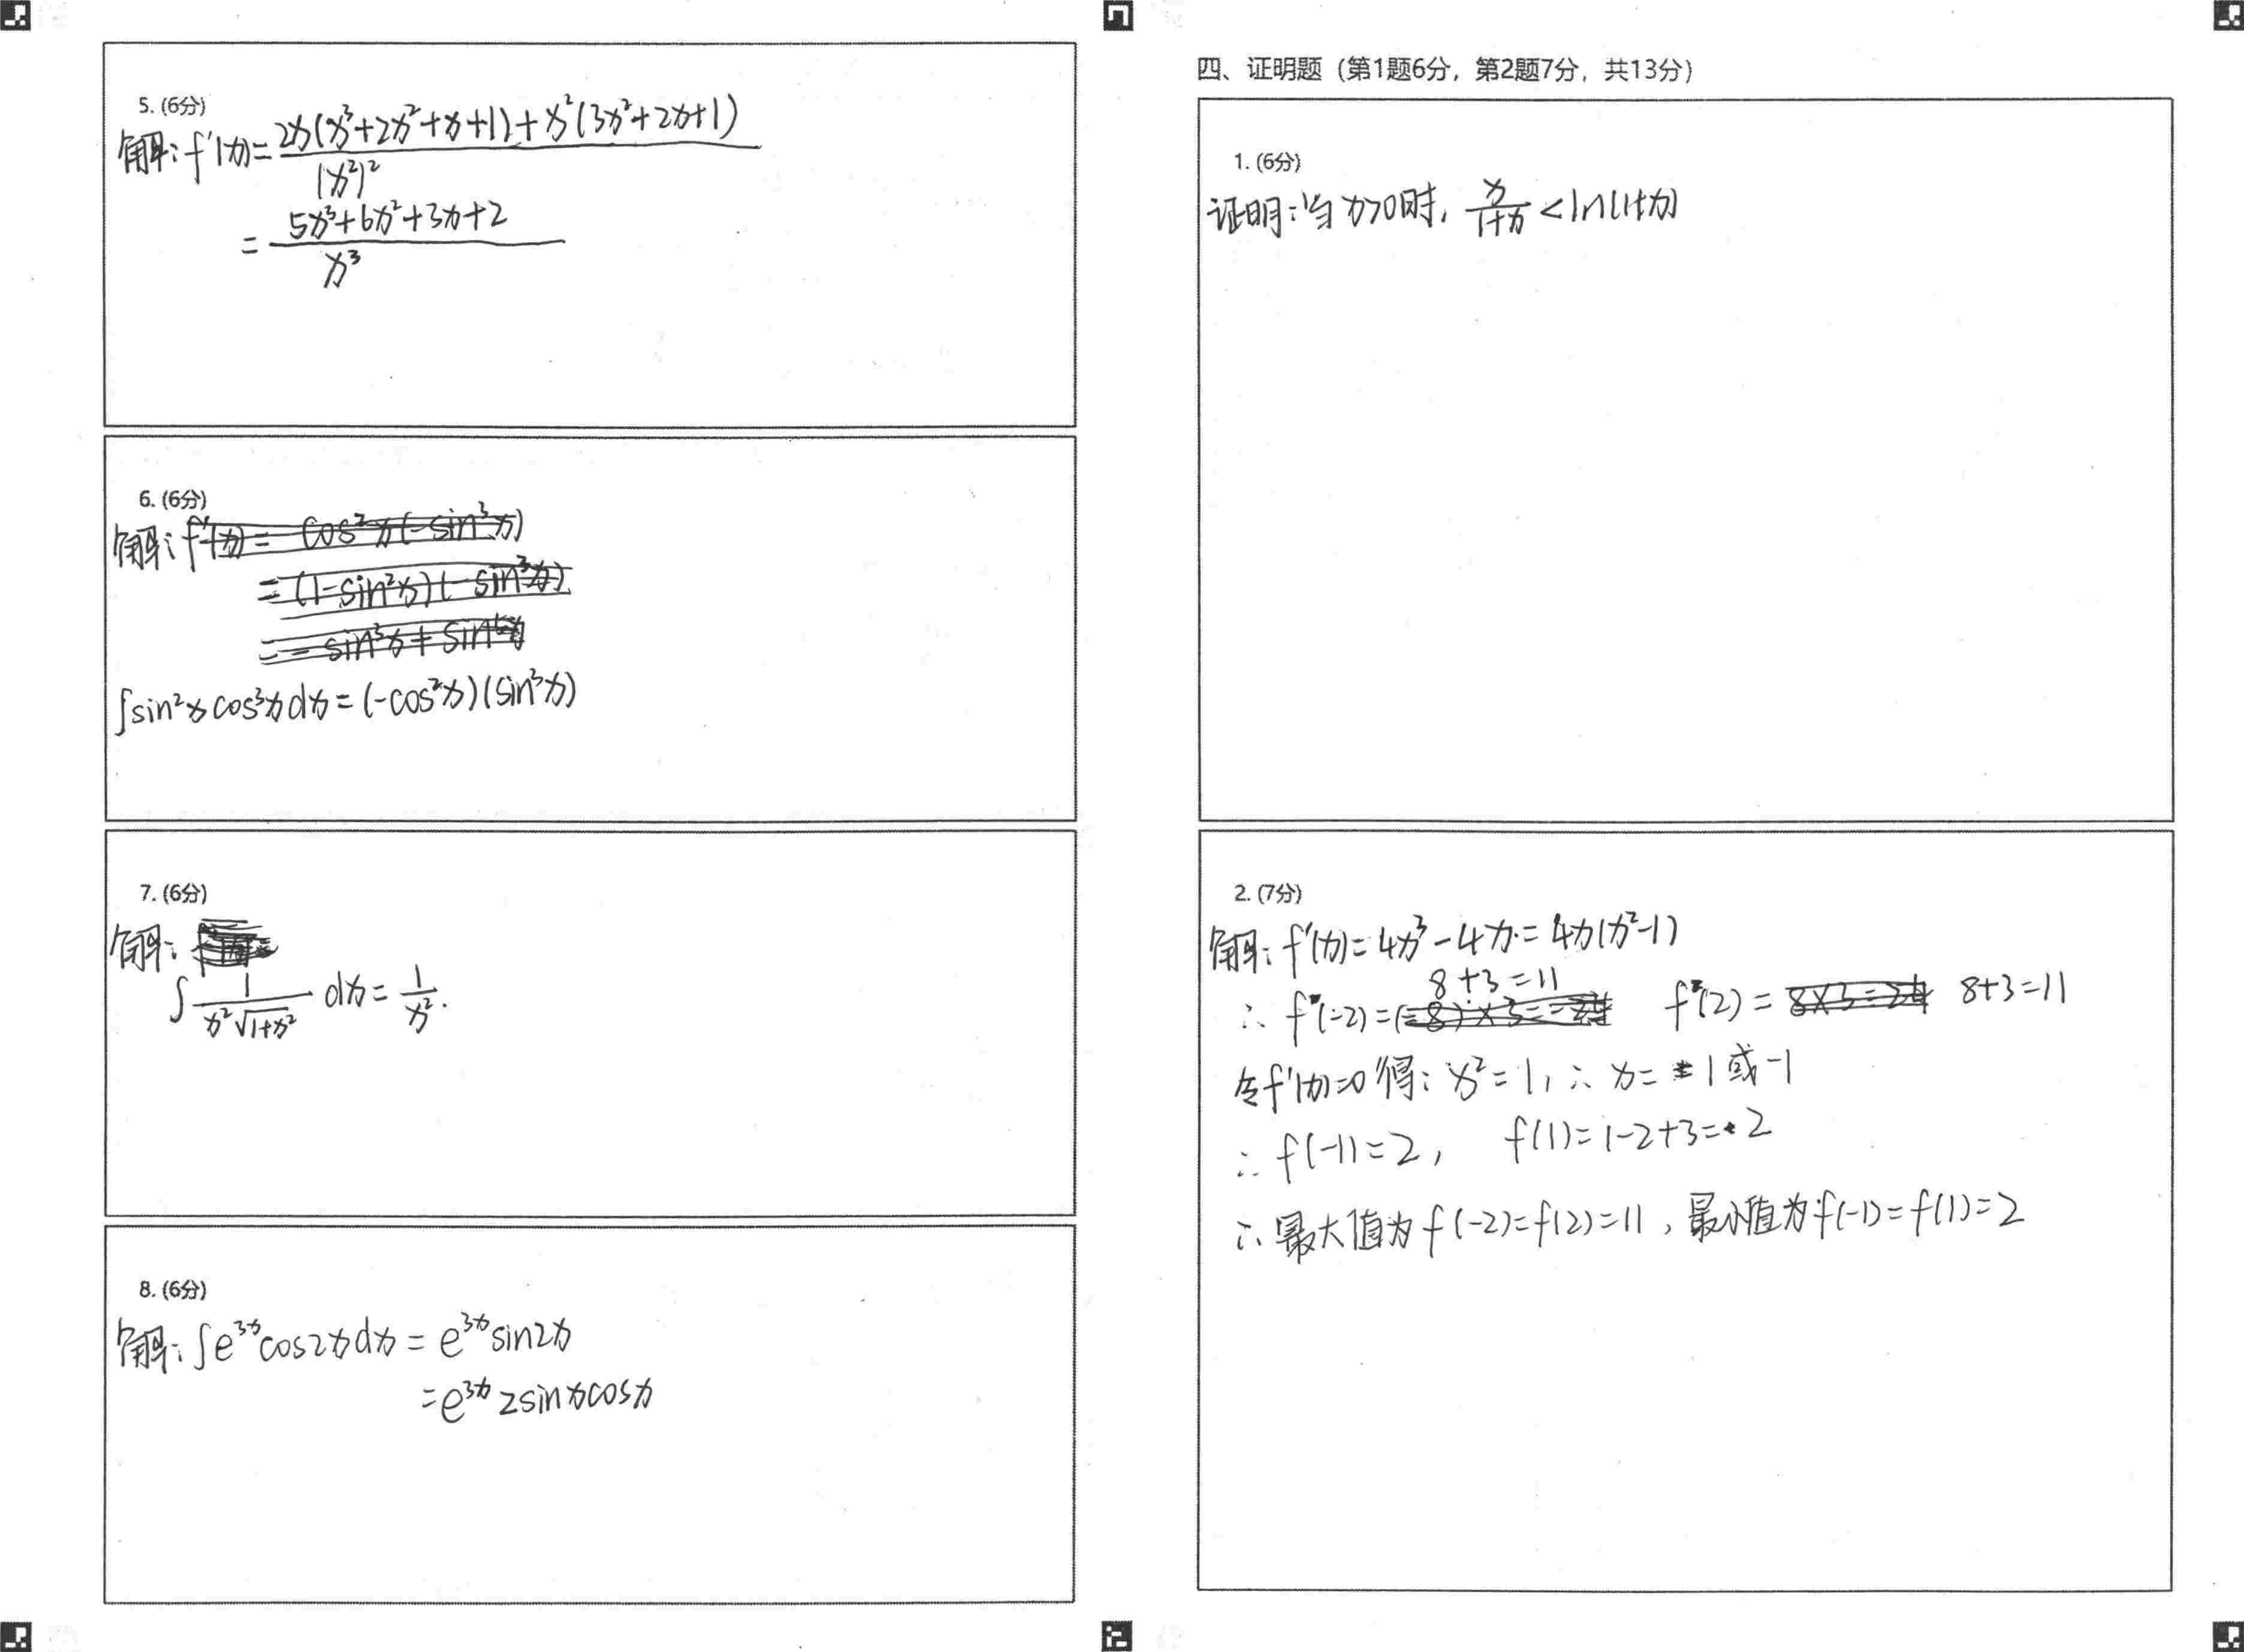 5. (6分)
解: f'(x) = \frac{2x(x^3+2x^2+x+1)+x^2(3x^2+2x+1)}{(x^2)^2}
= \frac{5x^3+6x^2+3x+2}{x^3}
6. (6分)
解: f'(x) = cos^2x(-sin^3x)
= (1-sin^2x)(-sin^3x)
∫sin^2x cos^3x dx = (-cos^2x)(sin^3x)
7. (6分)
解:
∫ \frac{1}{x^2\sqrt{1+x^2}} dx = \frac{1}{x^2}.
8. (6分)
解: ∫e^{3x}cos2xdx = e^{3x}sin2x
= e^{3x}2sinxcosx
四、证明题（第1题6分，第2题7分，共13分）
1. (6分)
证明: 当x>0时, \frac{x}{1+x} < ln(1+x)
2. (7分)
解: f'(x) = 4x^3-4x = 4x(x^2-1)
∴ f(-2) = 8+3=11 f(2) = 8+3=11
令f'(x)=0得: x^2=1, ∴ x= 1或-1
∴ f(-1)=2, f(1)=1-2+3=2
∴ 最大值为f(-2)=f(2)=11, 最小值为f(-1)=f(1)=2